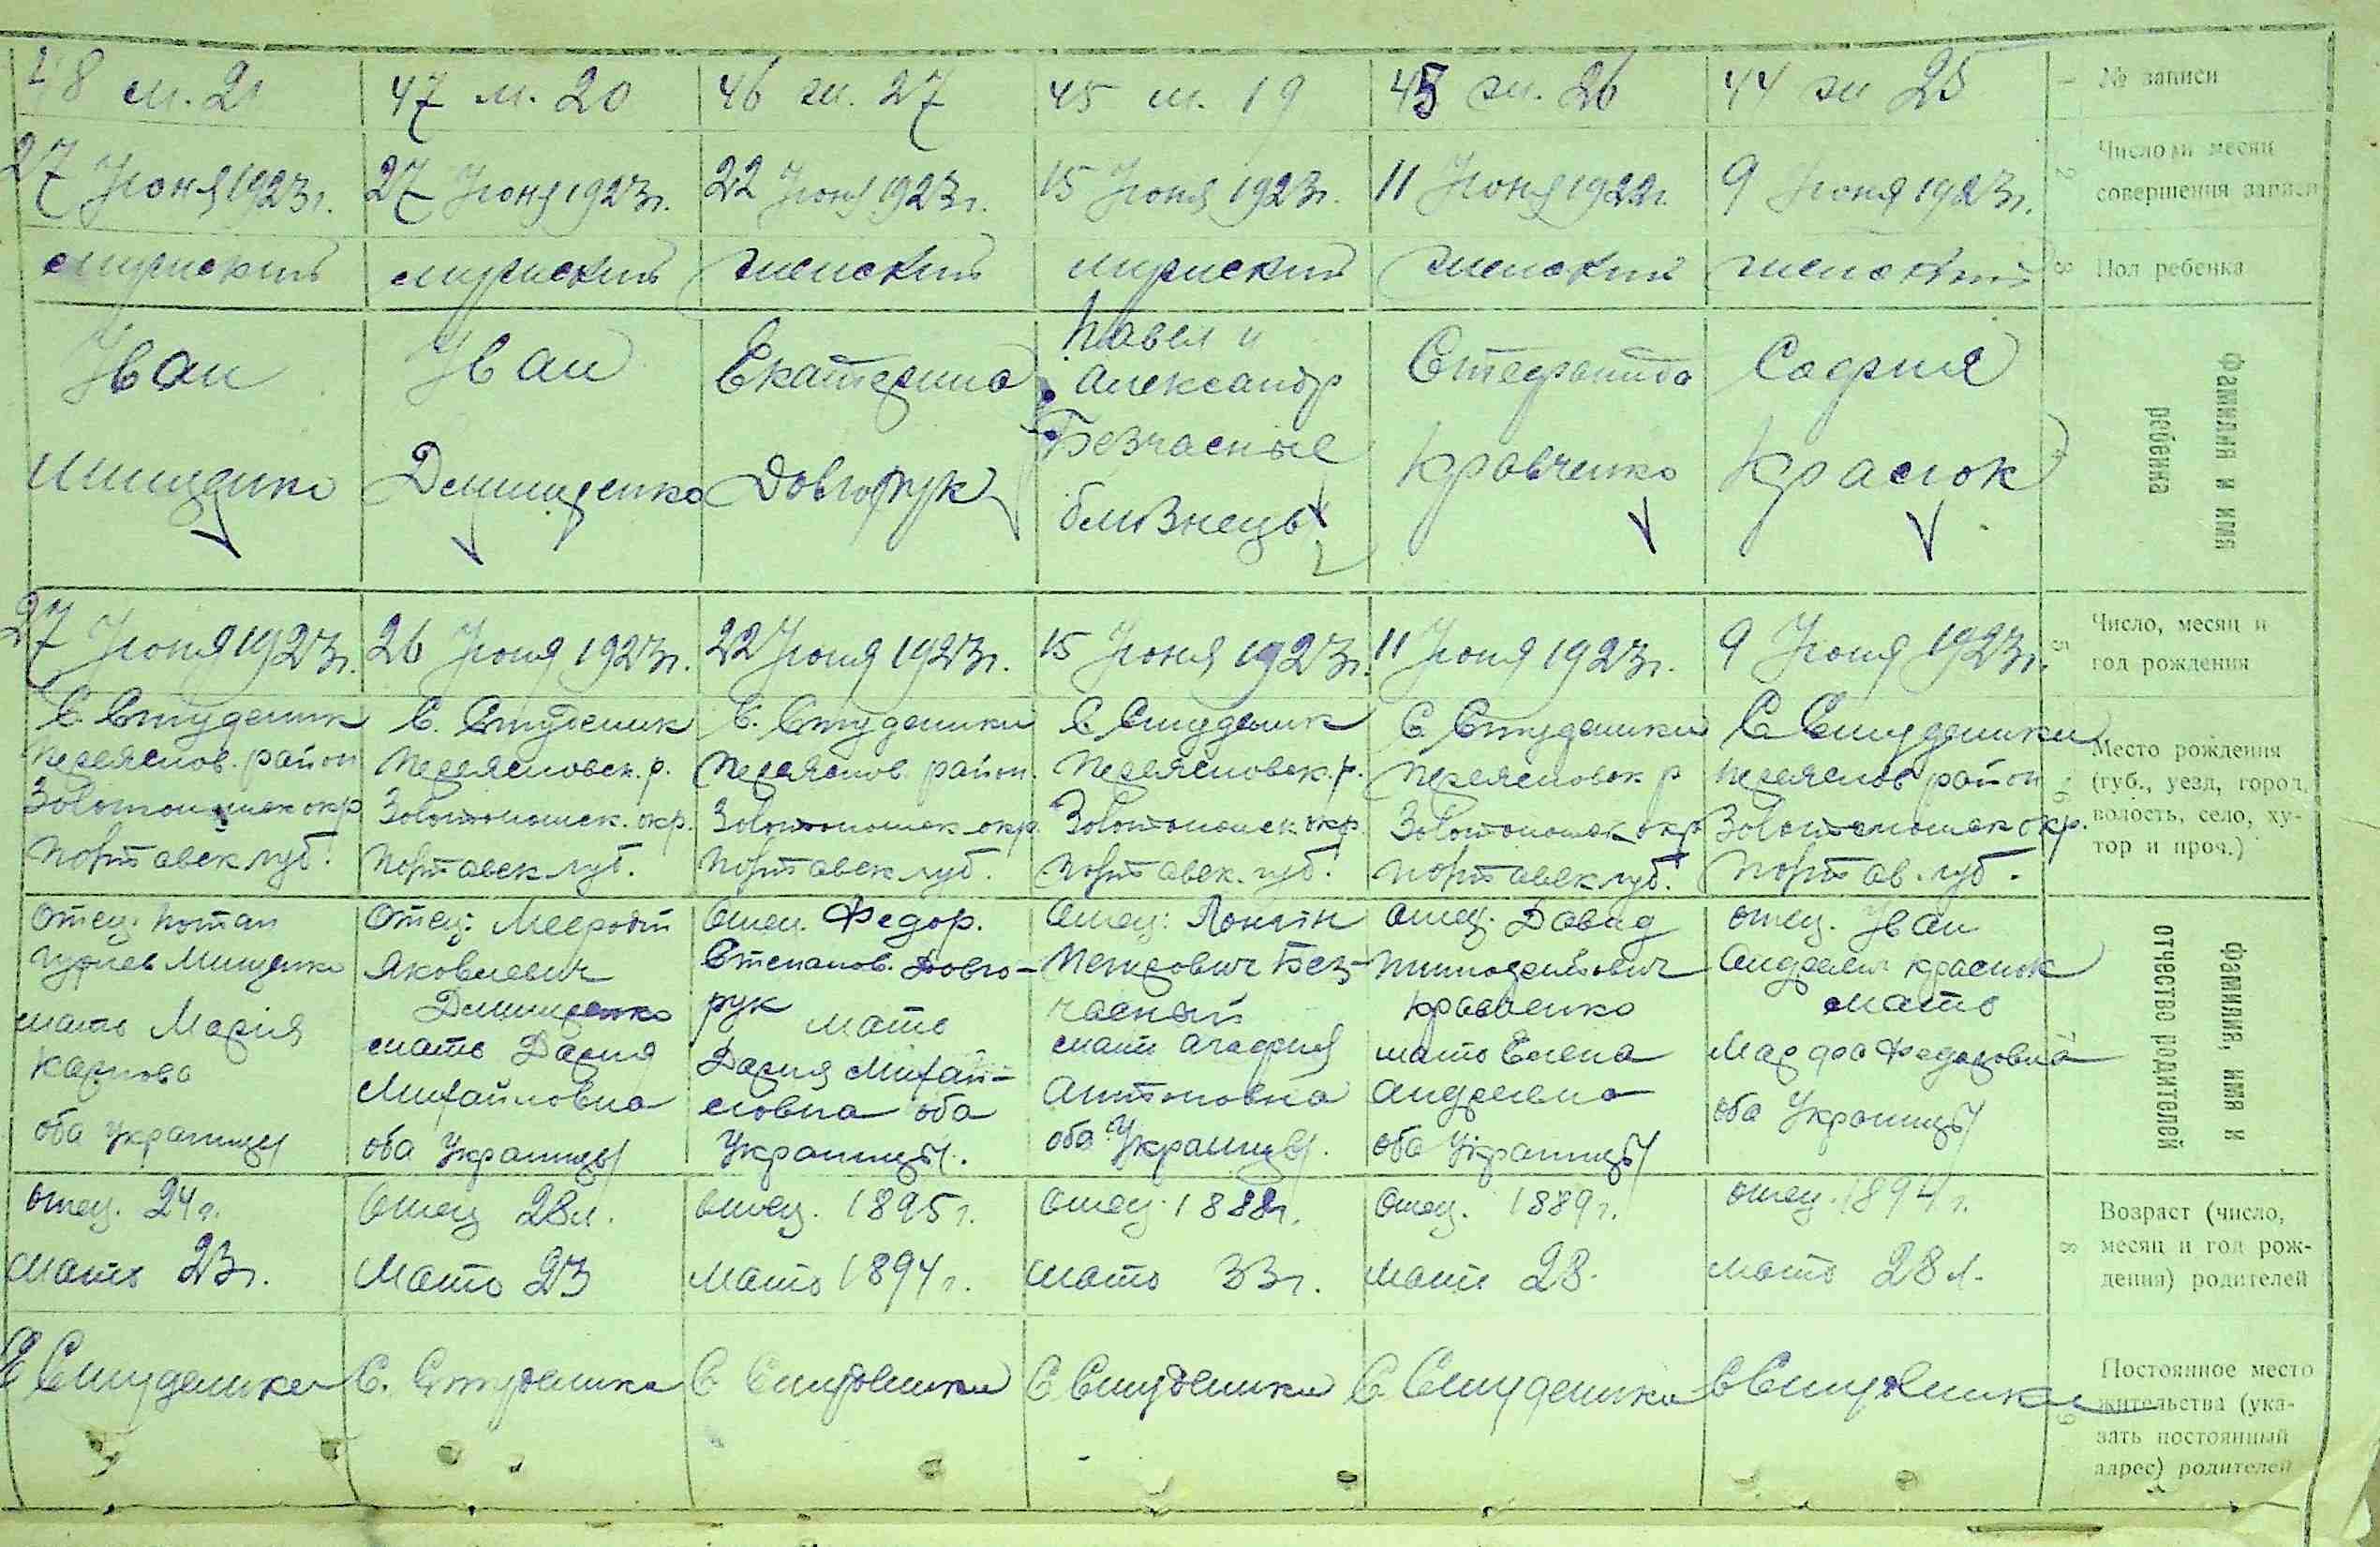 48 м. 21
47 м. 20
46 ж. 27
45 м. 19
45 ж. 26
44 ж 25
№ записи
27 Іюня 1923г.
27 Іюня 1923г.
22 Іюня 1923г.
15 Іюня 1923г.
11 Іюня 1922г.
9 Іюня 1923г.
2
Число и месяц
совершения записи
мужский
мужский
женский
мужский
женский
женский
Пол ребенка
Иван
Мищенко
Иван
Демиденко
Екатерина
Довгорук
Павел и
Александр
Безчасные
близнецы
2
Стефанида
Кравченко
София
Красюк
Фамилия и имя
ребенка
27 Іюня 1923г.
26 Іюня 1923г.
22 Іюня 1923г.
15 Іюня 1923г.
11 Іюня 1923г.
9 Іюня 1923г.
5
Число, месяц и
год рождения
С. Студеник
Переяслов. район
Золотоношск окр
Полтавск губ.
С. Студеник
Переясловск. р.
Золотоношск. окр.
Полтавск губ.
С. Студеники
Переяслов район.
Золотоношск окр.
Полтавск губ.
С Студеник
Переясловск. р.
Золотоношск окр.
Полтавск. губ.
С. Студеники
Переясловск р
Золотоношск окр
Полтавск губ.
С Студеники
Переяслов район
Золотоношск окр.
Полтав. губ.
6
Место рождения
(губ., уезд, город,
волость, село, ху-
тор и проч.)
Отец. Потап
Мищенко
мать Мария
Карпова
оба Украинцы
Отец: Мефодий
Яковлевич
Демиденко
мать Дария
Михайловна
оба Украинцы
Отец. Федор.
Степанов. Довго-
рук
мать
Дария Михай-
ловна оба
Украинцы.
Отец: Лонгін
Петрович Без-
часный
мать Агафия
Антоновна
оба Украинцы.
Отец. Давид
Тимофейович
Кравченко
мать Елена
Андреевна
оба Украинцы
отец. Иван
Андреевич Красюк
мать
Марфа Федоровна
оба Украинцы
7
Фамилия, имя и
отчество родителей
отец. 24г.
мать 23г.
Отец 28л.
Мать 23
отец. 1895г.
мать 1894г.
отец. 1888г.
мать 33г.
Отец. 1889г.
мать 28.
отец. 1894г.
мать 28 л.
8
Возраст (число,
месяц и год рож-
дения) родителей
С Студеники
С. Студеники
С Студеники
С Студеники
С. Студеники
С Студеники
9
Постоянное место
жительства (ука-
зать постоянный
адрес) родителей